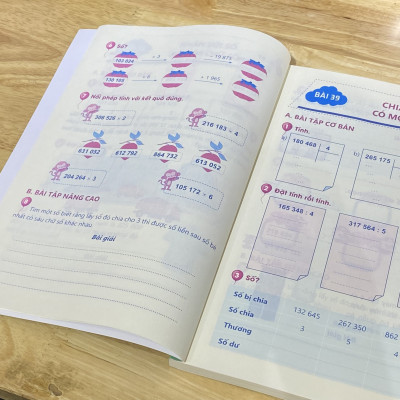 6 Số?
193 824 ÷ 3 − 19 875
138 108 ÷ 6 + 1 963
7 Nối phép tính với kết quả đúng.
306 526 × 2
216 183 × 4
631 052 612 792 864 732 613 052
204 264 × 3
105 172 × 6
B. BÀI TẬP NÂNG CAO
8 Tìm một số biết rằng lấy số đó chia cho 3 thì được số liền sau số bé
nhất có sáu chữ số khác nhau.
Bài giải
BÀI 39
CHIA
CÓ M
A. BÀI TẬP CƠ BẢN
1 Tính.
a) 186 468 4
b) 265 175
2 Đặt tính rồi tính.
165 348 : 4
317 564 : 5
3 Số?
Số bị chia 132 645 267 350 862
Số chia 3 5 4
Thương
Số dư